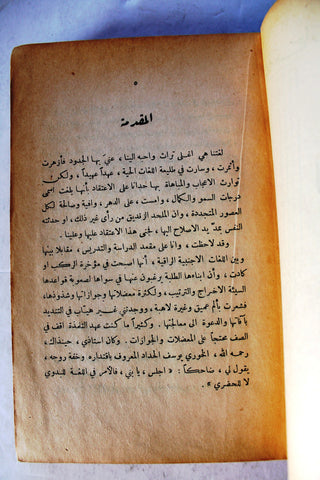 ٥
المقدمة
لغتنا هي اغلى تراث واحبه الينا، عني بها الجدود فأزهرت
وأثمرت، وسارت في طليعة اللغات الحية، عهداً عهيداً. ولكن
توارث الاعجاب والمباهاة بها حدانا على الاعتقاد بأنها بلغت اسمى
درجات السمو والكمال، وامست، على الدهر، وافية وصالحة لكل
العصور المتجددة، وان الملحد الزنديق من رأى غير ذلك، او حدثته
النفس بمدّ يد الاصلاح اليها، فجنى هذا الاعتقاد عليها وعلينا.
وقد لاحظت، وانا على مقعد الدراسة والتدريس، مقابلا بينها
وبين اللغات الاجنبية الراقية، أنها اصبحت في مؤخرة الركب او
كادت، وأن ابناءها الطلبة يرغبون عنها في سواها لصعوبة قواعدها
السيئة الاخراج والترتيب، ولكثرة معضلاتها وجوازاتها وشذوذها،
فشعرت بألم عميق وغيرة لاهبة، ووجدتني غير هيّاب في التنديد
بآفاتها والدعوة الى معالجتها. وكثيراً ما كنت عهد التلمذة اقف في
الصف محتجاً على المعضلات والجوازات. وكان استاذي، حينذاك،
رحمه الله، الخوري يوسف الحداد المعروف باقتداره وخفة روحه،
يقول لي، ضاحكاً: « اجلس، يا بني، فالأمر في اللغة للبدوي
لا للحضري ».